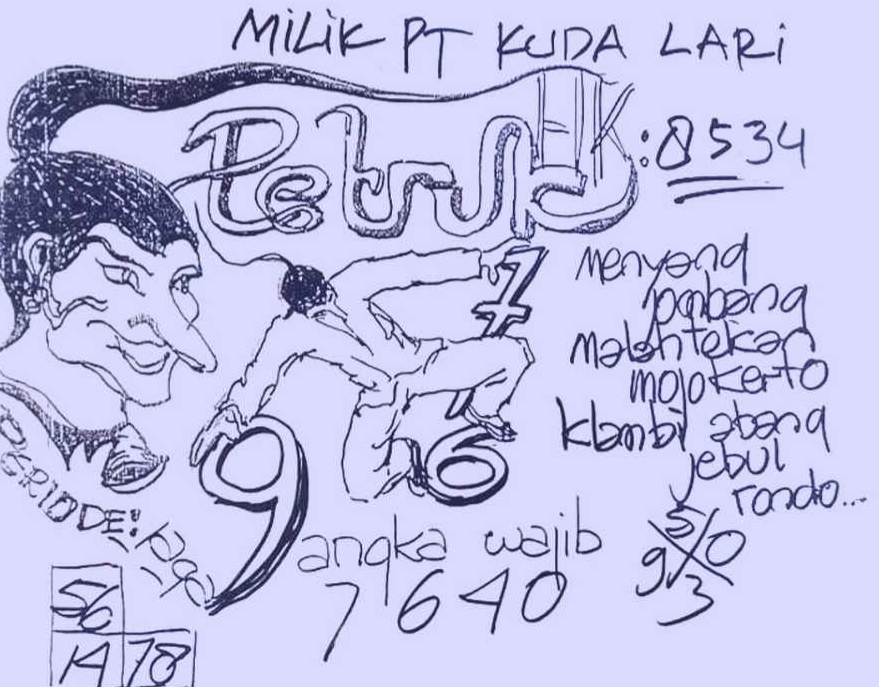 MILIK PT KUDA LARI
Petruk
HK:8534
menyang
pabang
malah tekan
mojokerto
klambi abang
jebul
rondo...
7
9 6
angka wajib
7640
5
9 X 0
3
56
14 78